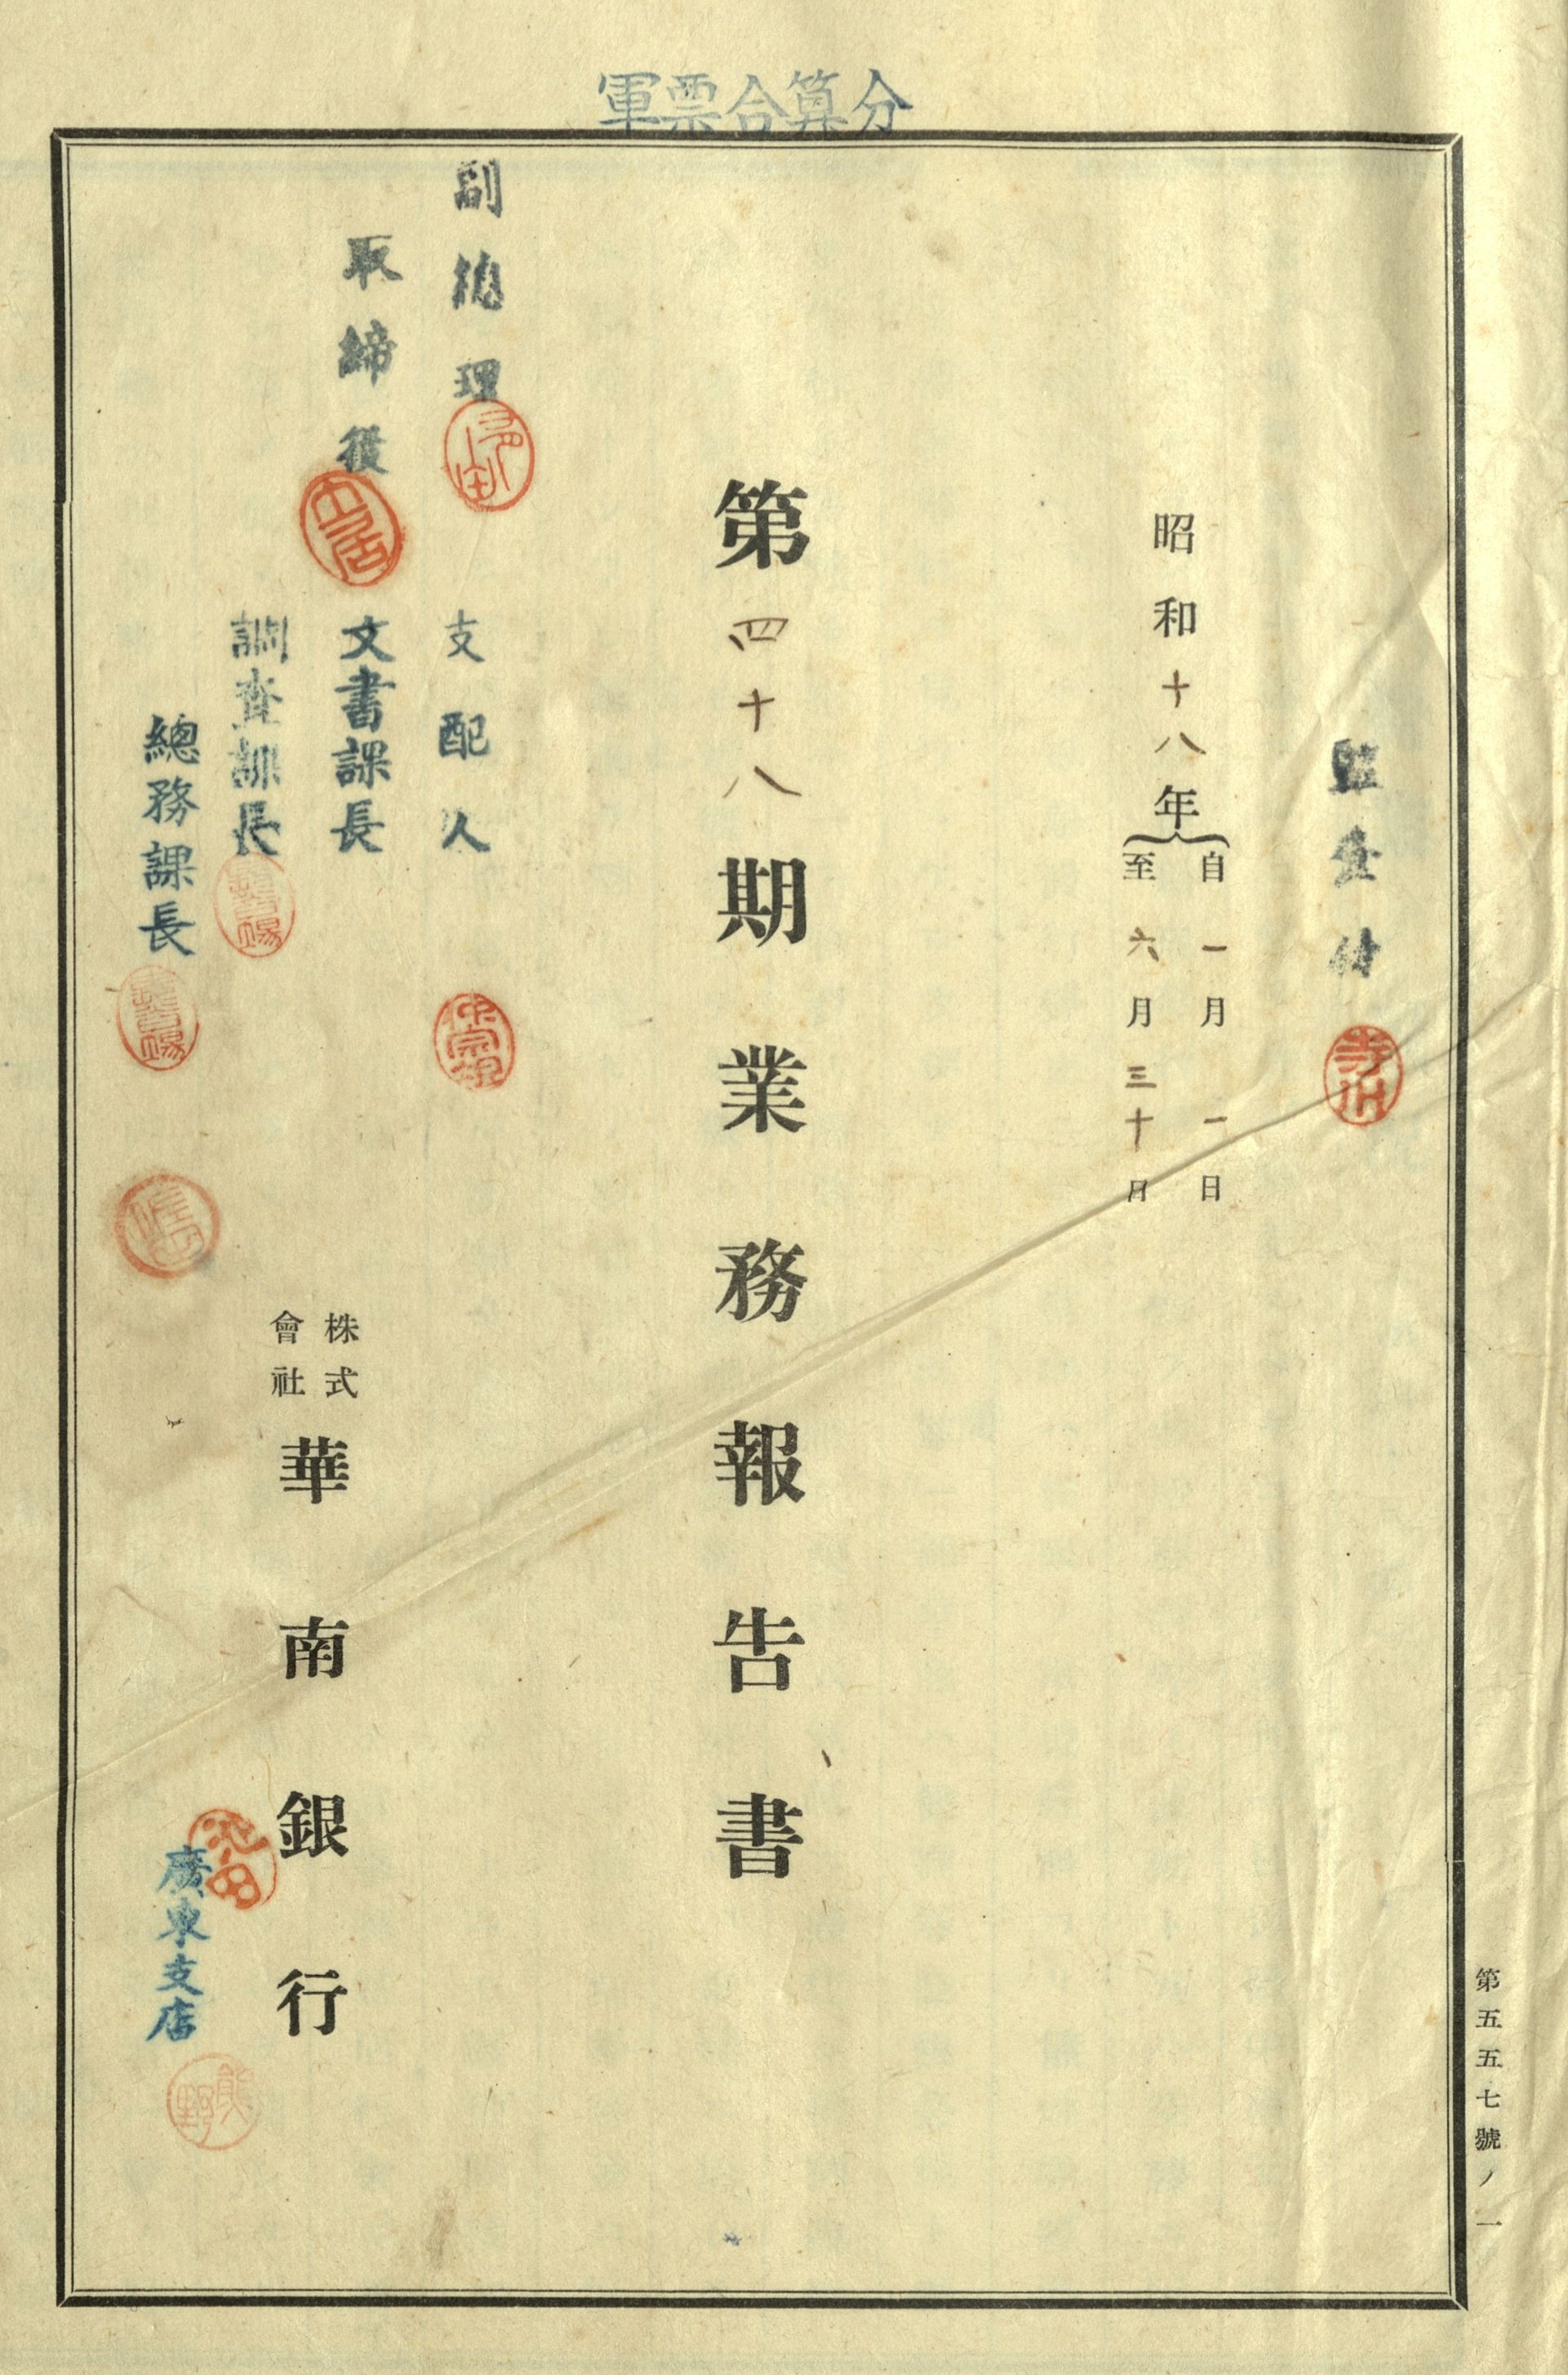 軍票合算分
監査付
昭和十八年
自一月一日
至六月三十日
第四十八期業務報告書
副總理
支配人
取締役
文書課長
調査課長
總務課長
株式
會社
華南銀行
廣東支店
熊野
第五五七號ノ一